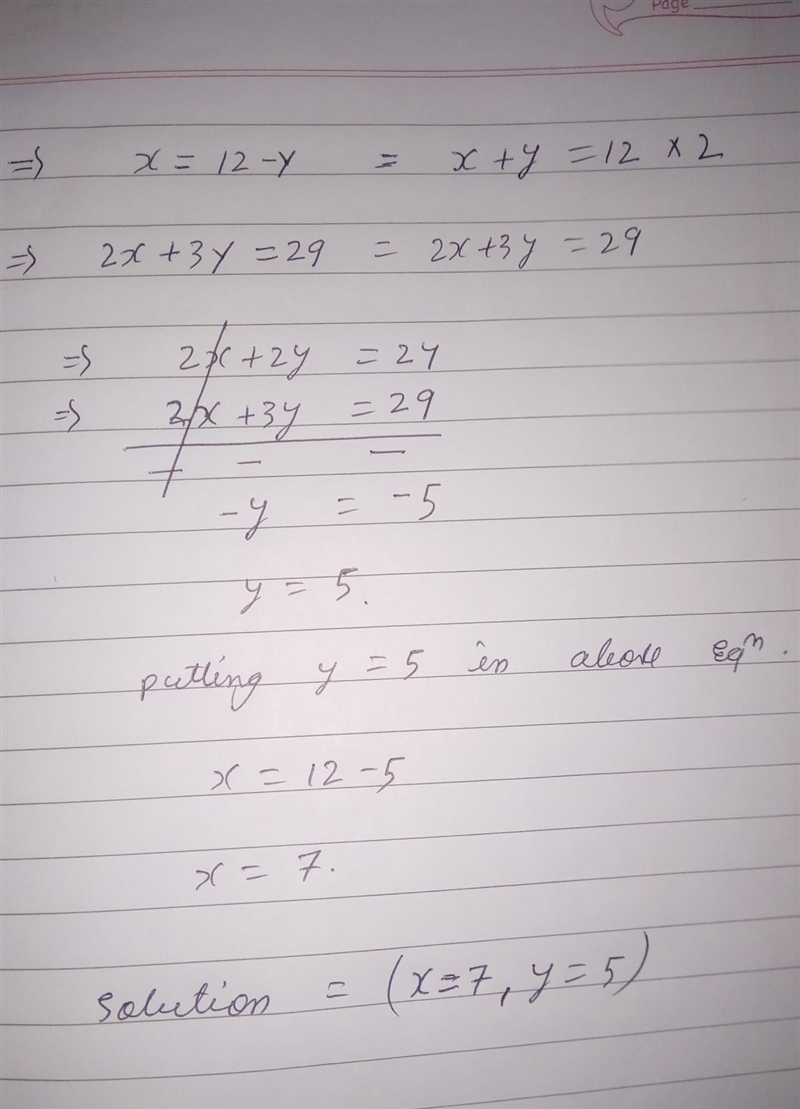 Page
⇒ x = 12 - y = x + y = 12 × 2
⇒ 2x + 3y = 29 = 2x + 3y = 29
⇒ 2x + 2y = 24
⇒ 2x + 3y = 29
- - -
-y = -5
y = 5.
putting y = 5 in above Eqⁿ.
x = 12 - 5
x = 7.
Solution = (x = 7, y = 5)